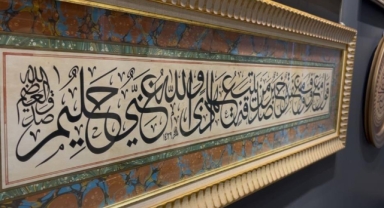 قول معروف ومغفرة خير من صدقة يتبعها أذى والله غني حليم
صدق الله العظيم